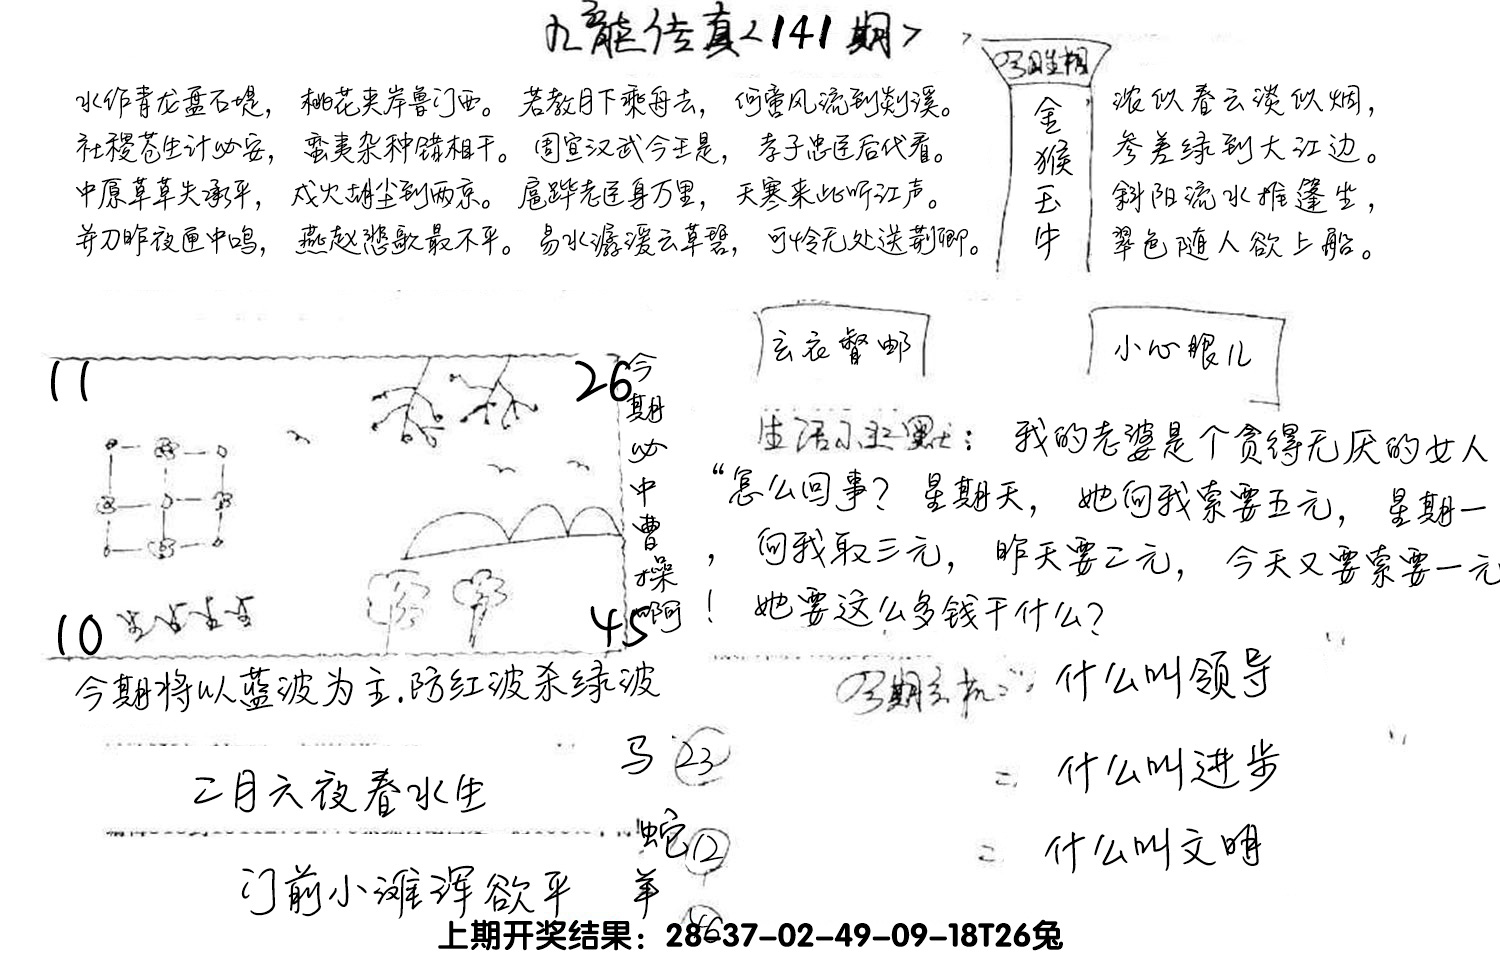 九龙传真<141期>
水作青龙盘石堤， 桃花夹岸鲁门西。 若教月下乘舟去， 何啻风流到剡溪。
社稷苍生计必安， 蛮夷杂种错相干。 周宣汉武今王是， 孝子忠臣后代看。
中原草草失承平， 戍火胡尘到两京。 扈跸老臣身万里， 天寒来此听江声。
并刀昨夜匣中鸣， 燕赵悲歌最不平。 易水潺湲云草碧， 可怜无处送荆卿。
今期生相
金猴玉牛
浓似春云淡似烟，
参差绿到大江边。
斜阳流水推篷坐，
翠色随人欲上船。
玄衣督邮
小心眼儿
11
26
10
45
今期必中曹操啊
生活小幽默： 我的老婆是个贪得无厌的女人
“怎么回事？ 星期天， 她向我索要五元， 星期一
， 向我取三元， 昨天要二元， 今天又要索要一元
！ 她要这么多钱干什么？
今期将以蓝波为主.防红波杀绿波
今期玄机
什么叫领导
什么叫进步
什么叫文明
二月六夜春水生
门前小滩浑欲平
马 23
蛇 12
羊 46
上期开奖结果：28-37-02-49-09-18T26兔